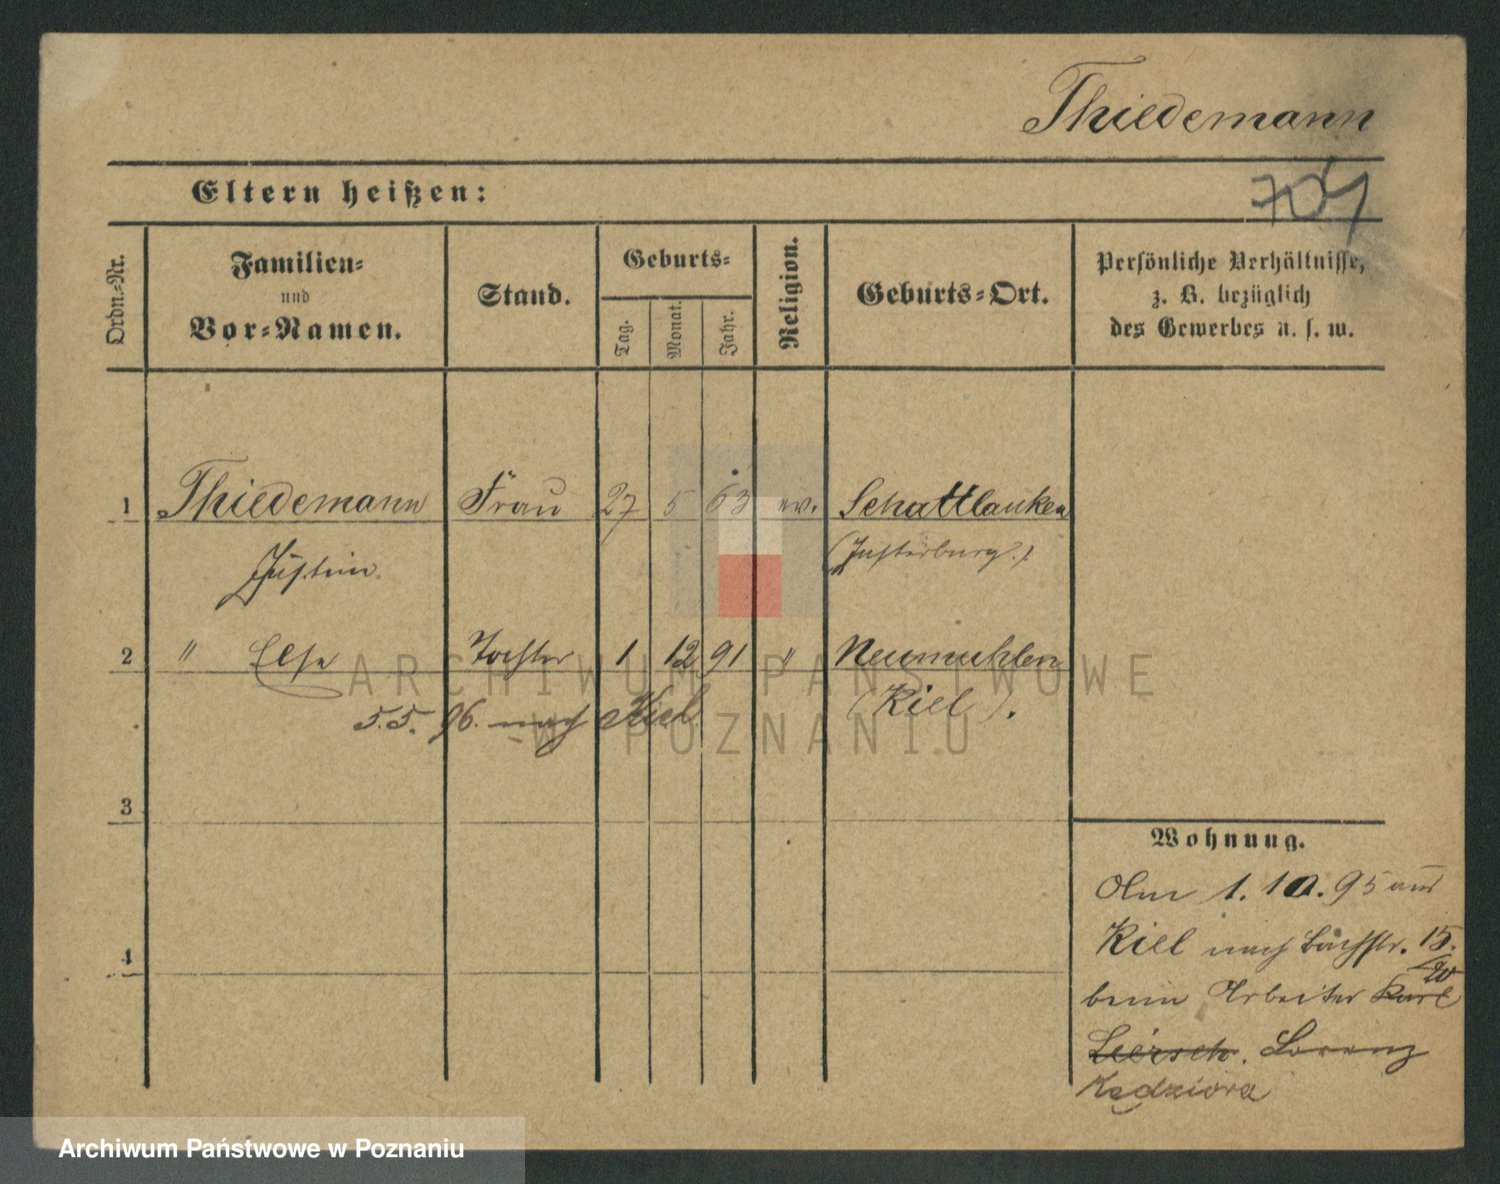 Thiedemann
Eltern heißen:
Ordn.-Nr.
Familien-
und
Vor-Namen.
Stand.
Geburts-
Tag.
Monat.
Jahr.
Religion.
Geburts-Ort.
Persönliche Verhältnisse,
z. B. bezüglich
des Gewerbes u. s. w.
1 Thiedemann Frau 27 5 63 ev. Schattlauken
Justine (Insterburg.)
2 " Else Tochter 1 12 91 " Neumuhlen
5.5. 96. nach Kiel (Kiel).
3
4
Wohnung.
Am 1. 10. 95 aus
Kiel nach 15.
beim Arbeiter Karl
Liersch. Lorenz
Kedziora
ARCHIWUM PAŃSTWOWE
W POZNANIU
Archiwum Państwowe w Poznaniu